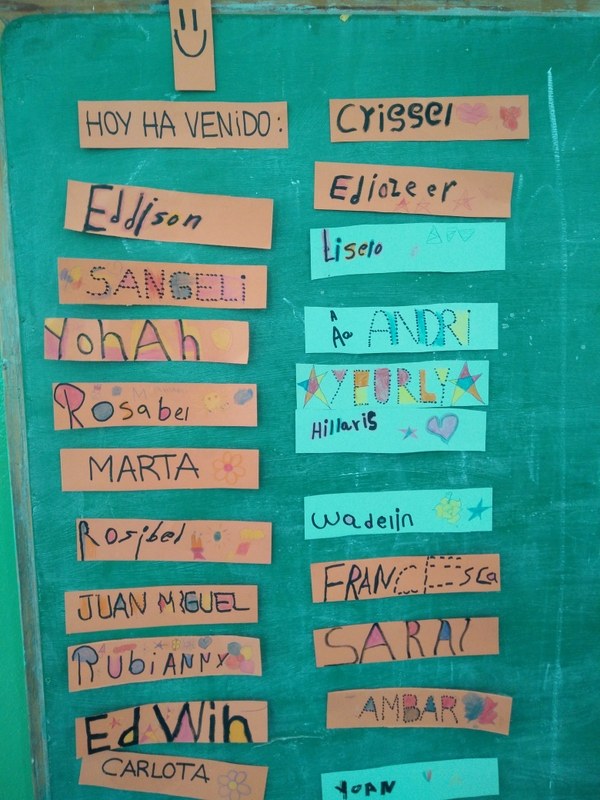 HOY HA VENIDO:
Eddison
SANGELi
YohAh
Rosabel
MARTA
Rosibel
JUAN MIGUEL
RUbiANNY
EdWin
CARLOTA
Crissel
Ediozeer
Liselo
A
Aa ANDRi
YEURLY
Hillaris
Wadelin
FRANCEsca
SARAI
AMBAR
YOAN